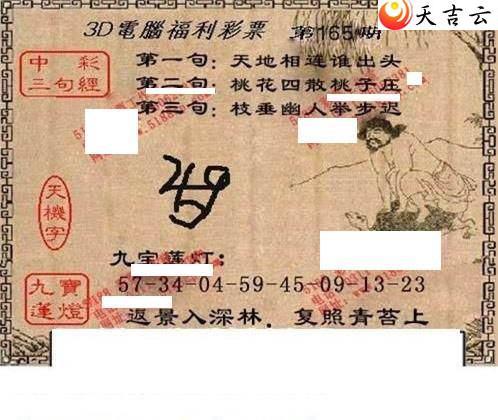 天吉云
3D電腦福利彩票 第165期
中彩
三句經
第一句：天地相连谁出头
第二句：桃花四散桃子庄
第三句：枝垂幽人举步迟
天機字
九宝莲灯：
九寶蓮燈
57-34-04-59-45-09-13-23
返景入深林．复照青苔上